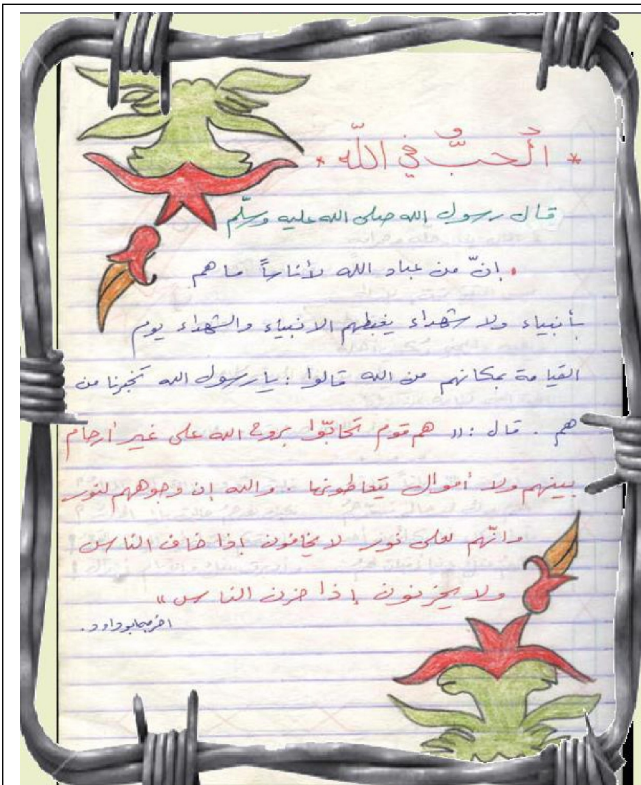 * الْحُبُّ في اللّه *
قال رسول الله صلى الله عليه وسلّم
• إنّ من عباد الله لأناساً ما هم
بأنبياء ولا شهداء يغبطهم الانبياء والشهداء يوم
القيامة بمكانهم من الله قالوا : يا رسول الله تخبرنا من
هم . قال : (( هم قوم تحابّوا بروح الله على غير أرحام
بينهم ولا أموال يتعاطونها . والله إن وجوههم لنور
وانّهم لعلى نور لا يخافون إذا خاف الناس
ولا يحزنون إذا حزن الناس ))
اخرجه ابو داود .